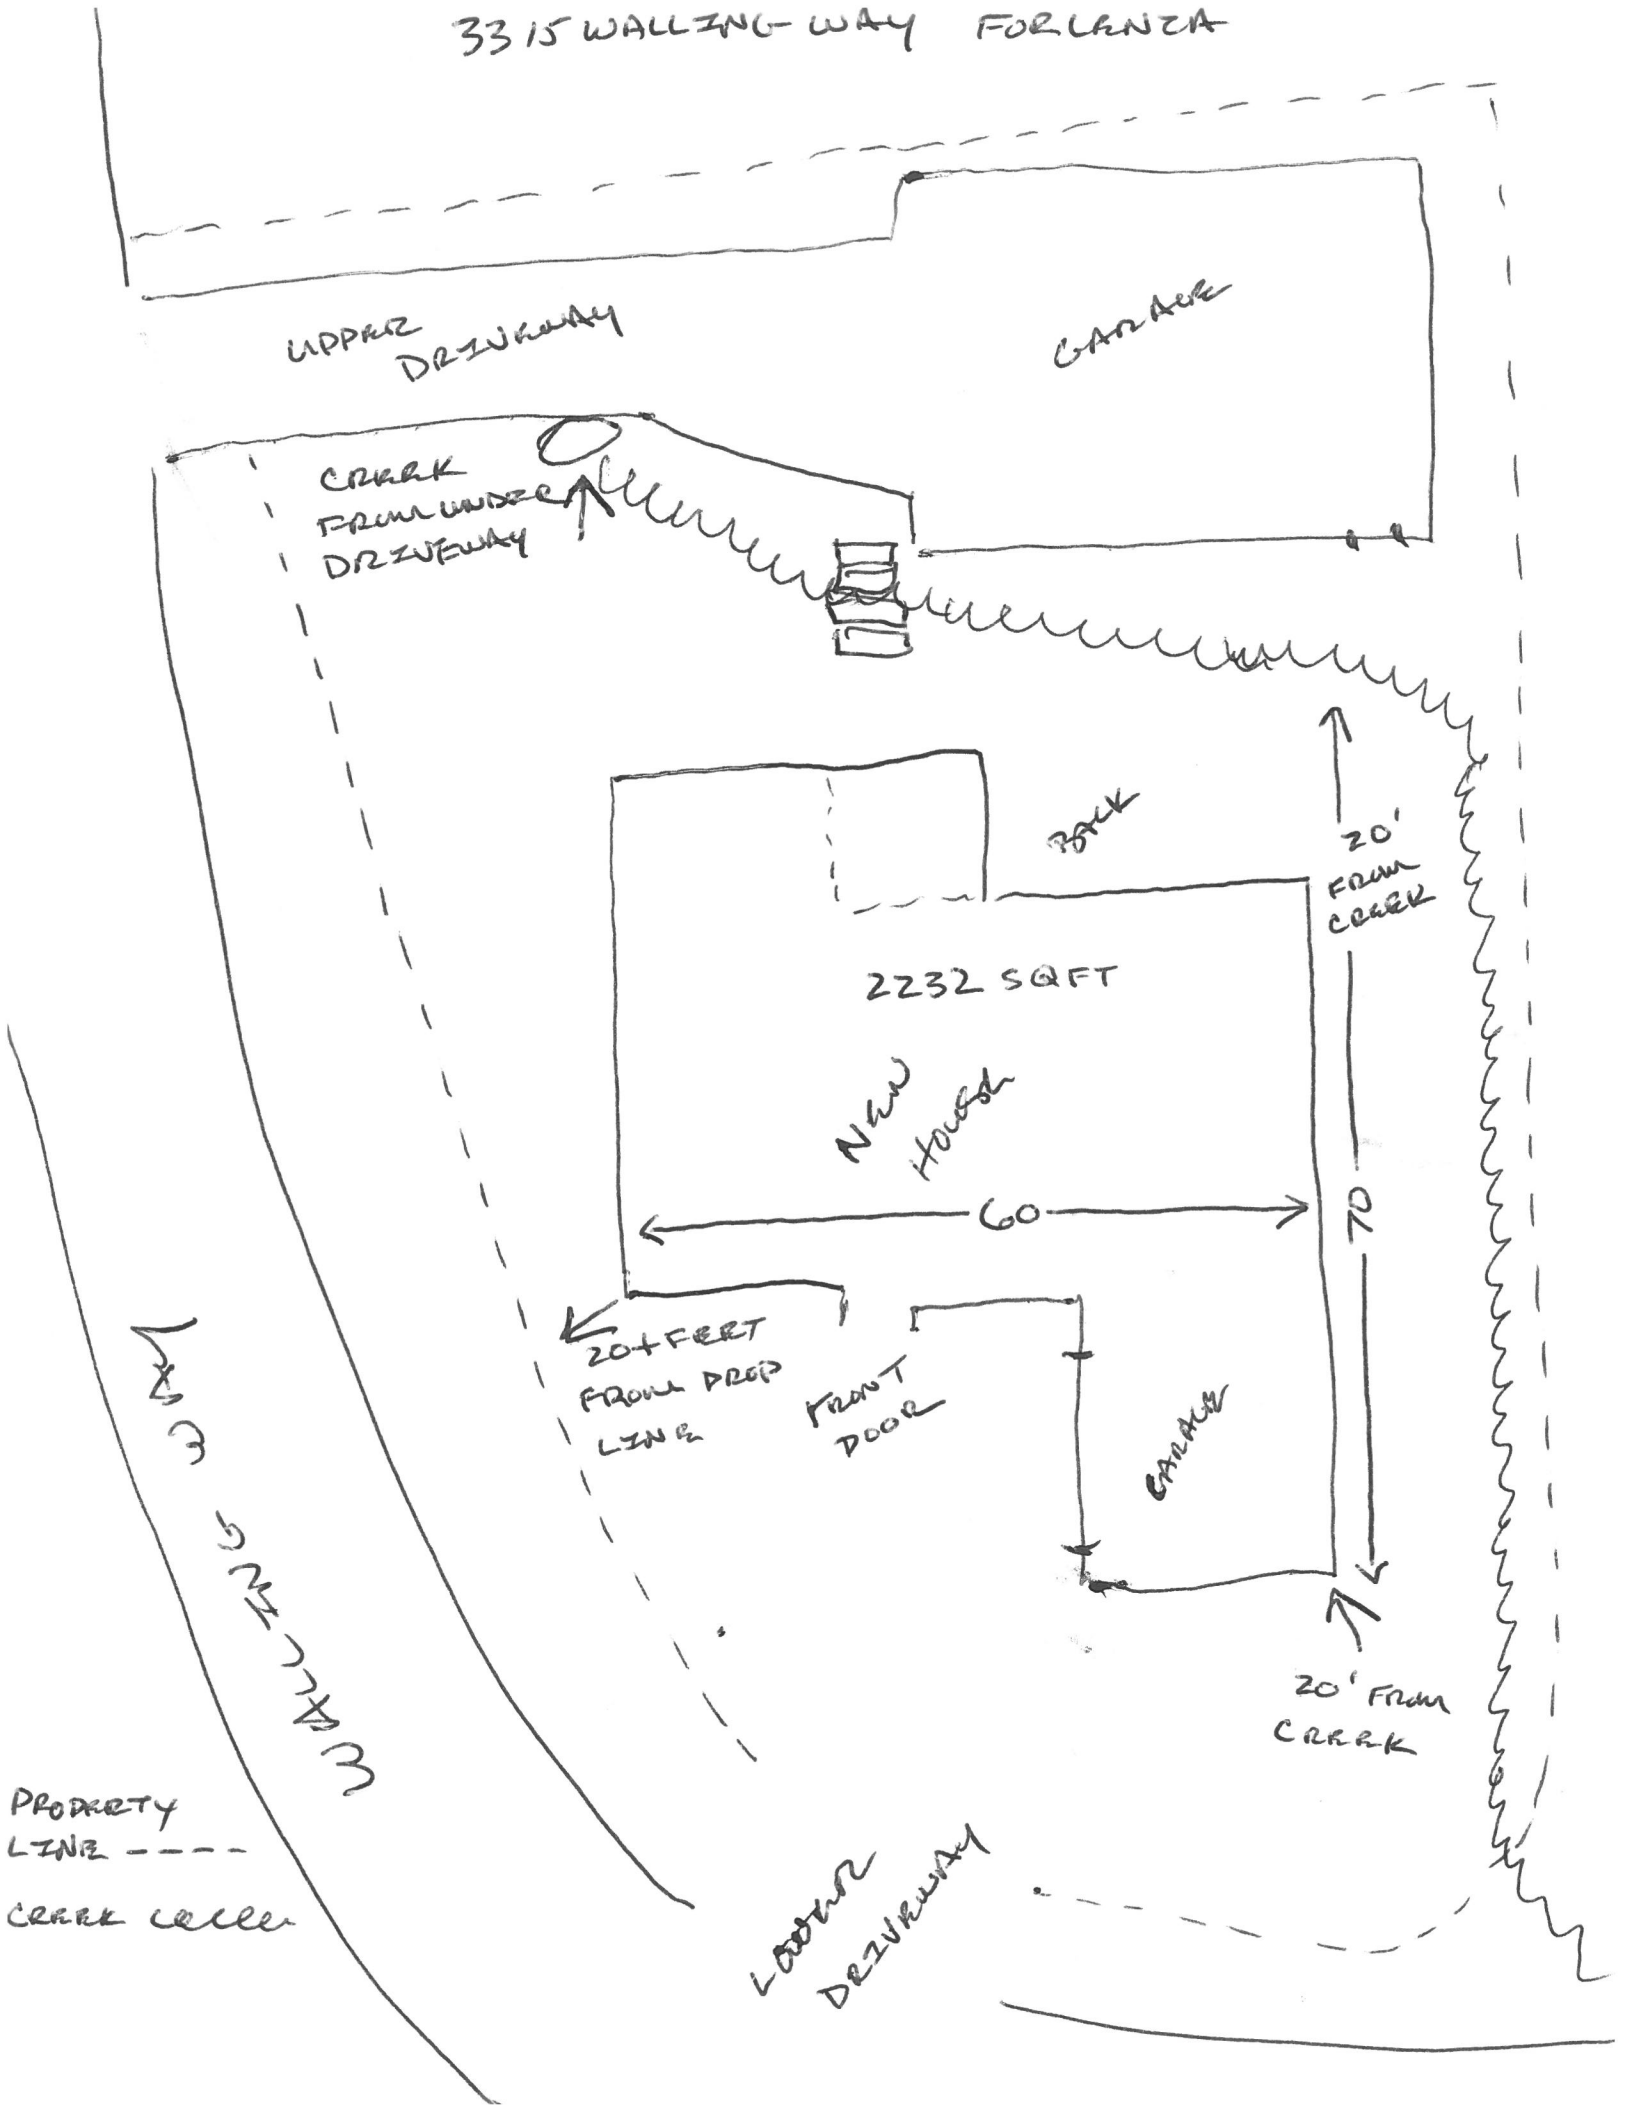 3315 WALLING WAY FORLENZA
UPPER
DRIVEWAY
GARAGE
CREEK
FROM UNDER
DRIVEWAY
BACK
20'
FROM
CREEK
2232 SQFT
NEW
HOUSE
60
70
20+ FEET
FROM DROP
LINE
FRONT
DOOR
GARAGE
20' FROM
CREEK
WALLING WAY
PROPERTY
LINE
CREEK
LOWER
DRIVEWAY